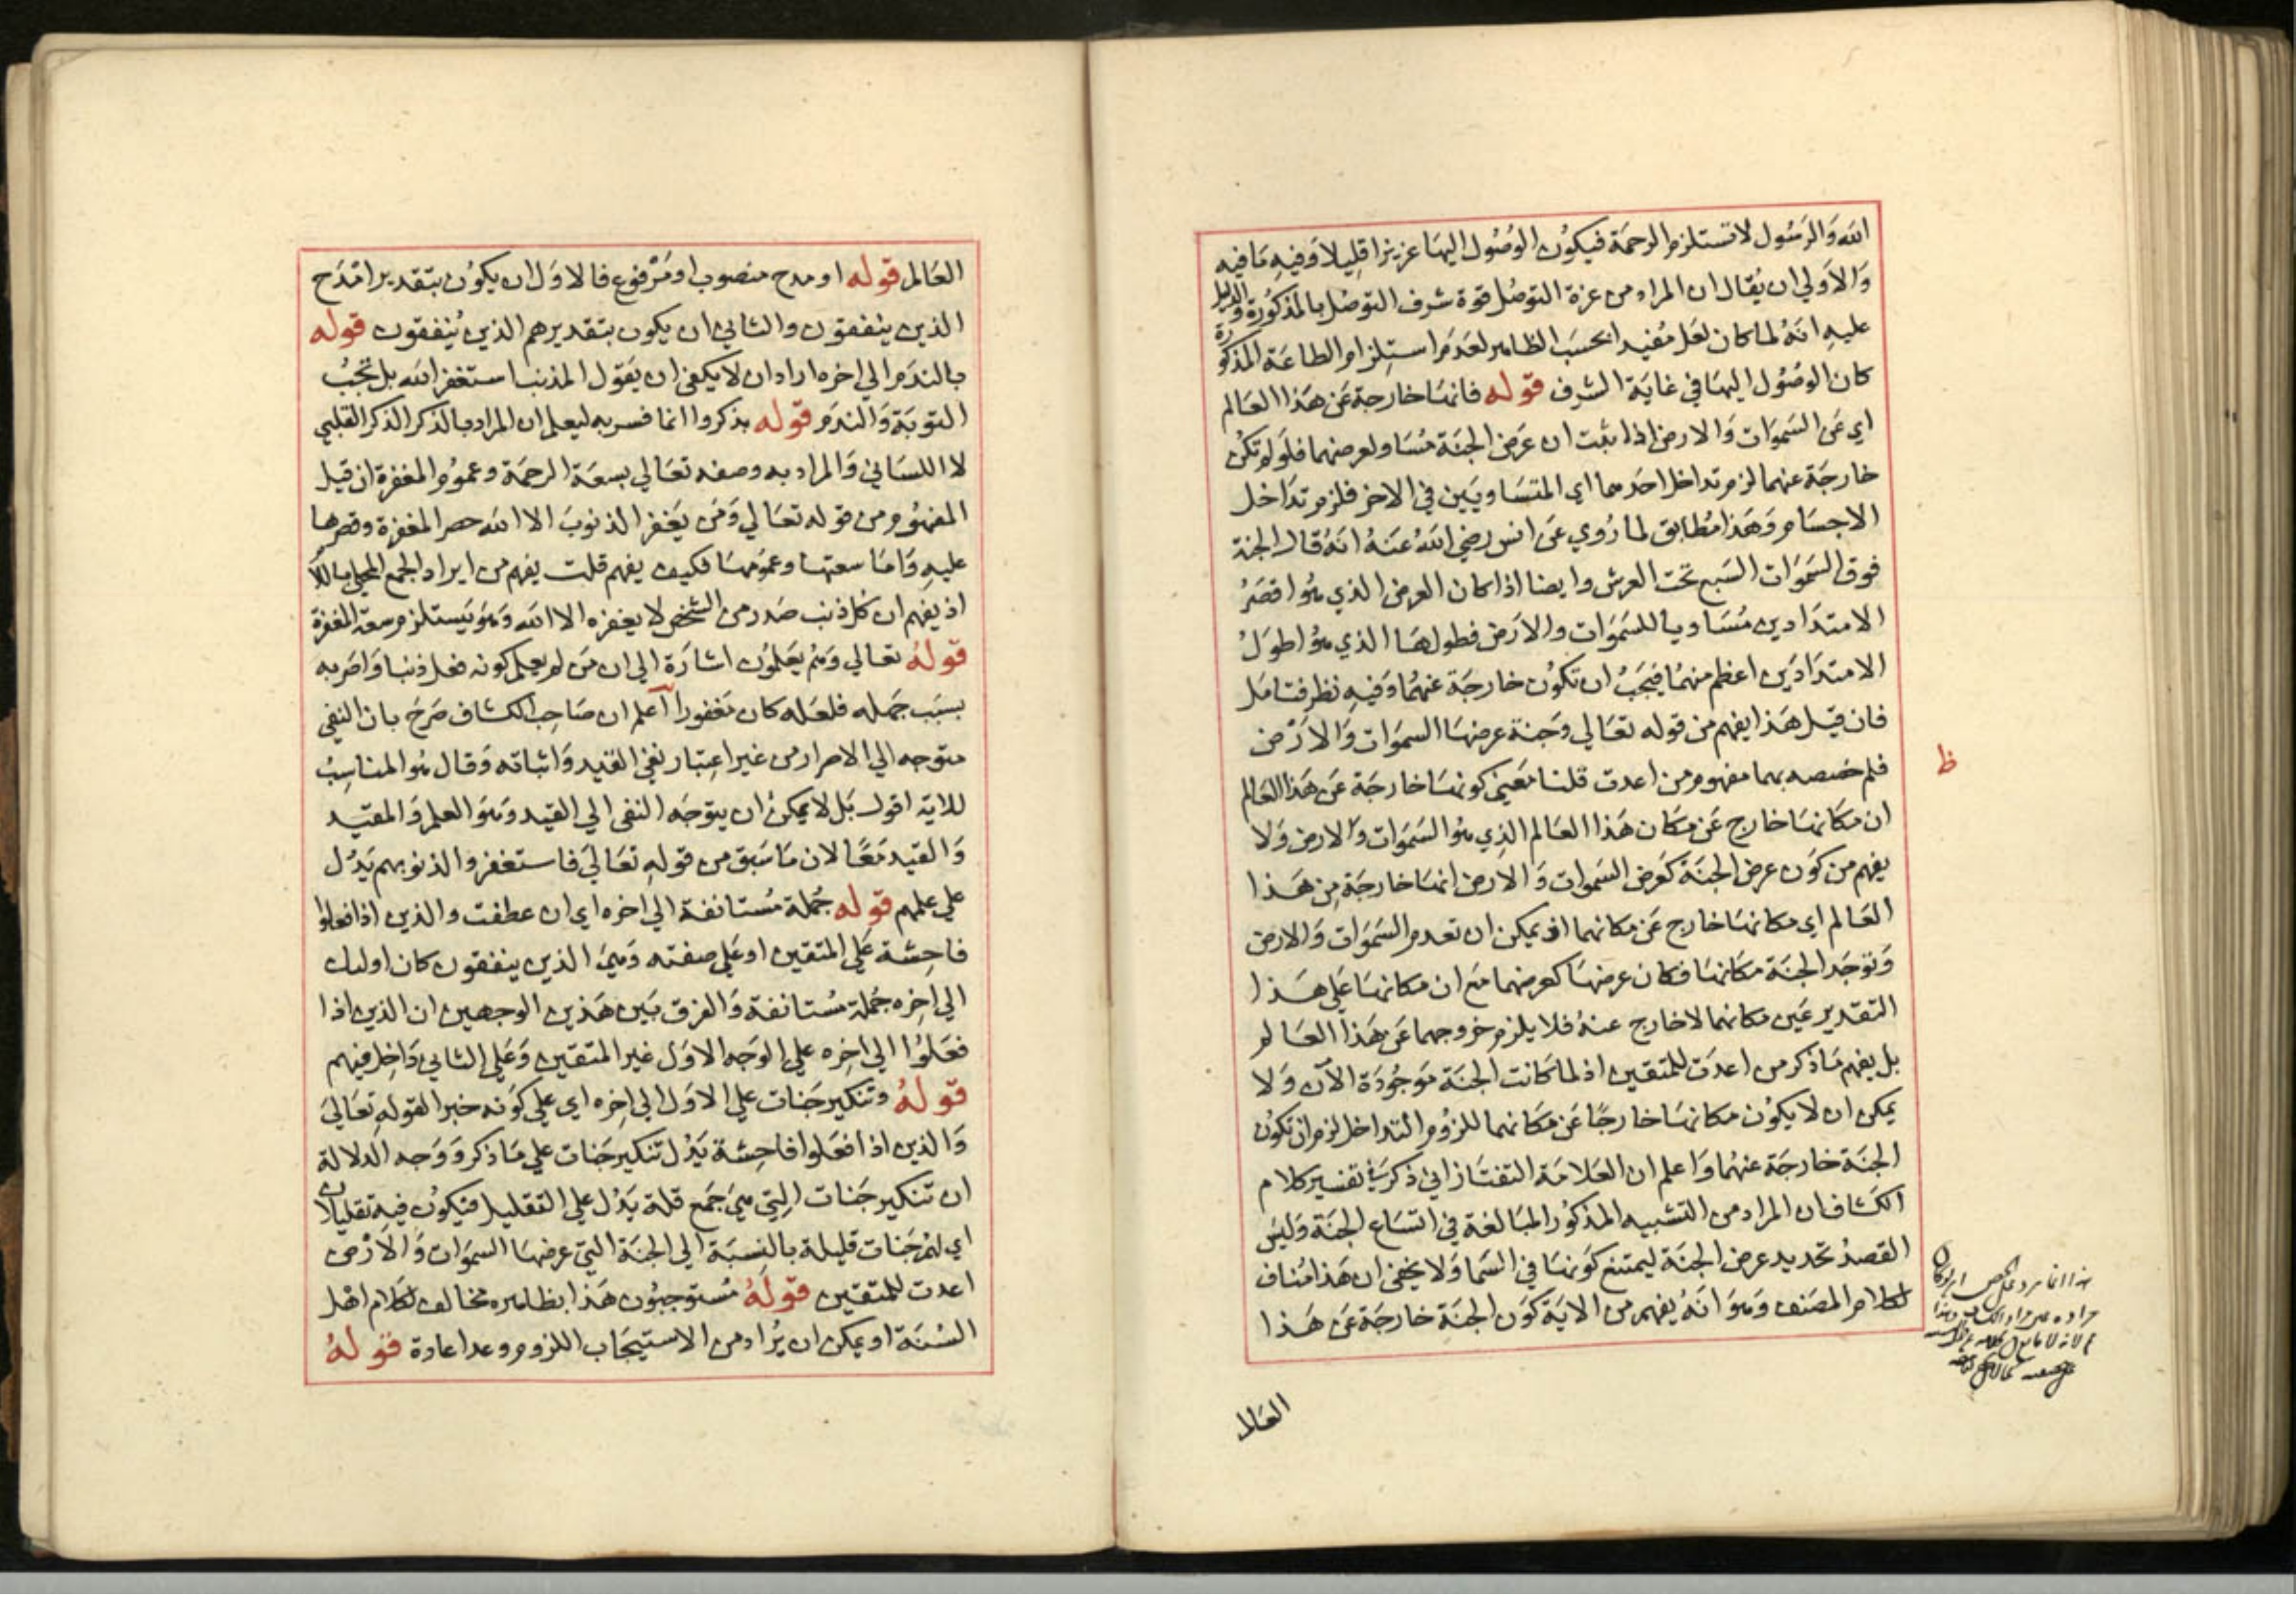 الله والرسول لا تستلزم الرحمة فيكون الوصول اليها عزيزا قليلا وفيه ما فيه
والاولى ان يقال ان المراد من عزة التوصل قوة شرف التوصل بالمذكورة والدليل
عليه انه لما كان لعل مفيدا بحسب الظاهر لعدم استلزام الطاعة المذكورة
كان الوصول اليها في غاية الشرف قوله فانها خارجة عن هذا العالم
اي عن السموات والارض اذا ثبت ان عرض الجنة مساو لعرضهما فلو لم تكن
خارجة عنهما لزم تداخل احدهما اي المتساويين في الاخر فلزم تداخل
الاجسام وهذا مطابق لما روي عن انس رضي الله عنه انه قال الجنة
فوق السموات السبع تحت العرش وايضا اذا كان العرض الذي هو اقصر
الامتدادين مساويا للسموات والارض فطولها الذي هو اطول
الامتدادين اعظم منهما فيجب ان تكون خارجة عنهما وفيه نظر فتامل
فان قيل هذا يفهم من قوله تعالي وجنة عرضها السموات والارض
فلم خصصه بهما مفهوم من اعدت قلنا معني كونها خارجة عن هذا العالم
ان مكانها خارج عن مكان هذا العالم الذي هو السموات والارض ولا
يفهم من كون عرض الجنة كعرض السموات والارض انها خارجة من هذا
العالم اي مكانها خارج عن مكانهما اذ يمكن ان تعدم السموات والارض
وتوجد الجنة مكانها فكان عرضها كعرضهما مع ان مكانها علي هذا
التقدير عين مكانهما لا خارج عنه فلا يلزم خروجها عن هذا العالم
بل يفهم ما ذكر من اعدت للمتقين اذ لما كانت الجنة موجودة الآن ولا
يمكن ان لا يكون مكانها خارجا عن مكانهما للزوم التداخل لزم ان تكون
الجنة خارجة عنهما واعلم ان العلامة التفتازاني ذكر في تفسير كلام
الكشاف ان المراد من التشبيه المذكور المبالغة في اتساع الجنة وليس
القصد تحديد عرض الجنة ليمتنع كونها في السما ولا يخفي ان هذا مناف
لكلام المصنف وهو انه يفهم من الاية كون الجنة خارجة عن هذا
ظ
العالم
العالم قوله او مدح منصوب او مرفوع فالاول ان يكون بتقدير امدح
الذين ينفقون والثاني ان يكون بتقدير هم الذين ينفقون قوله
بالندم الي اخره اراد ان لا يكفي ان يقول المذنب استغفر الله بل تجب
التوبة والندم قوله بذكروا انما فسر به ليعلم ان المراد بالذكر الذكر القلبي
لا اللساني والمراد به وصفه تعالي بسعة الرحمة وعموم المغفرة ان قيل
المفهوم من قوله تعالي ومن يغفر الذنوب الا الله حصر المغفرة وقصرها
عليه واما سعتها وعمومها فكيف يفهم قلت يفهم من ايراد الجمع المحلي باللام
اذ يفهم ان كل ذنب صدر من الشخص لا يغفره الا الله وهو يستلزم سعة المغفرة
قوله تعالي وهم يعلمون اشارة الي ان من لم يعلم كونه فعل ذنبا واصر به
بسبب جهله فلعله كان مغفورا اعلم ان صاحب الكشاف صرح بان النفي
متوجه الي الاصرار من غير اعتبار نفي القيد واثباته وقال هو المناسب
للاية اقول بل لا يمكن ان يتوجه النفي الي القيد وهو العلم والمقيد
والقيد معا لان ما سبق من قوله تعالي فاستغفروا لذنوبهم يدل
علي علمهم قوله جملة مستانفة الي اخره اي ان عطفت والذين اذا فعلوا
فاحشة علي المتقين او علي صفته وهي الذين ينفقون كان اولئك
الي اخره جملة مستانفة والفرق بين هذين الوجهين ان الذين اذا
فعلوا الي اخره علي الوجه الاول غير المتقين وعلي الثاني داخل فيهم
قوله وتنكير جنات علي الاول الي اخره اي علي كونه خبرا لقوله تعالي
والذين اذا فعلوا فاحشة يدل تنكير جنات علي ما ذكر ووجه الدلالة
ان تنكير جنات التي هي جمع قلة يدل علي التقليل فيكون فيه تقليلان
اي لهم جنات قليلة بالنسبة الي الجنة التي عرضها السموات والارض
اعدت للمتقين قوله مستوجبون هذا بظاهره مخالف لكلام اهل
السنة او يمكن ان يراد من الاستيجاب اللزوم وعدا عادة قوله